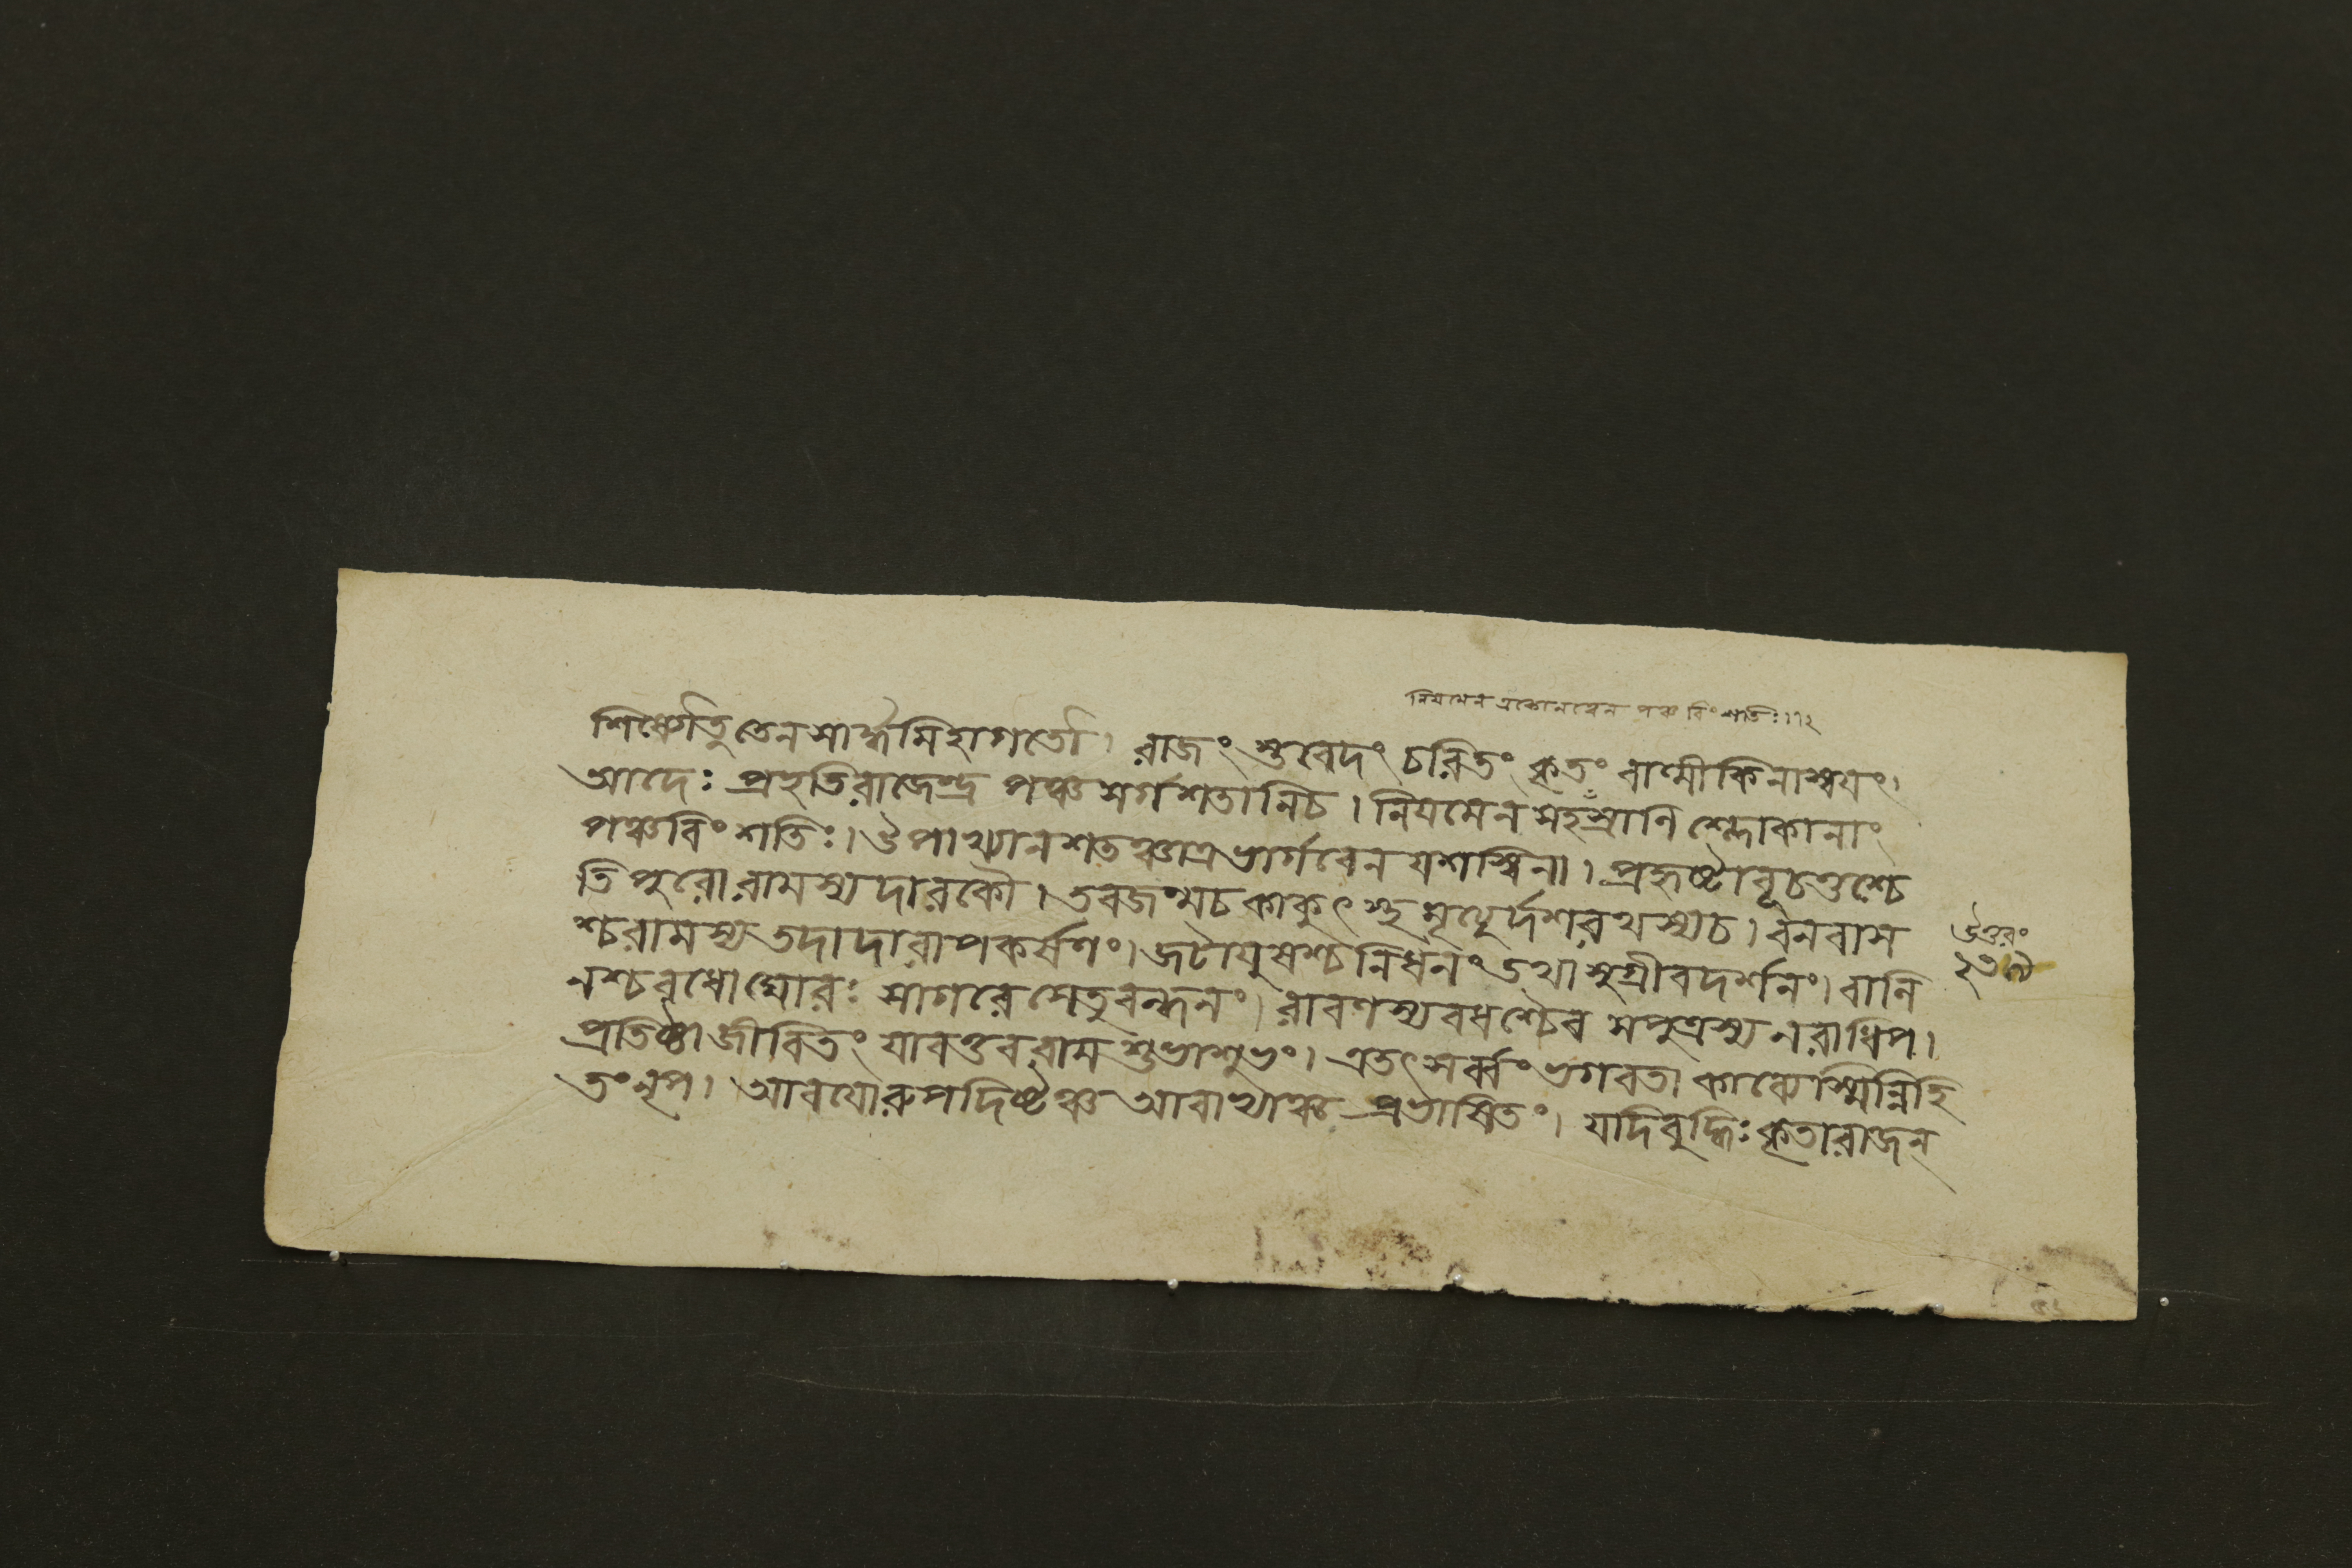 নিয়মেন এতেনবেন পঞ্চ বিং শতিঃ।।২
শিষ্যৌতু তেন সার্দ্ধমিহাগতৌ। রাজং স্তবেদং চরিতং কৃতং বাল্মীকিনাস্বয়ং।
আদেঃ প্রহৃতি রাজেন্দ্র পঞ্চ সর্গ শতানিচ। নিয়মেন সহস্রানি শ্লোকানাং
পঞ্চবিং শতিঃ। উপাখ্যান শতঞ্চাত্র ভার্গবেন যশস্বিনা। প্রহৃষ্টাবূচতুশ্চে
তি পুরো রামস্য দারকৌ। তবজন্মচ কাকুৎস্থ মৃত্যুর্দশরথস্যচ। বনবাস
শ্চ রামস্য তদা দারাপকর্ষণং। জটায়ুষশ্চ নিধনং তথা সুগ্রীব দর্শনং। বালি
উত্তরং
২৩৯
নশ্চ বধো ঘোরঃ সাগরে সেতুবন্ধনং। রাবণস্য বধশ্চৈব সপুত্রস্য নরাধিপ।
প্রতিষ্ঠা জীবিতং যাবত্তব রাম শুভাশুভং। এতৎ সর্ব্বং ভগবতা কাব্যেস্মিন্নিহি
তং নৃপ। আবয়োরুপদিষ্টঞ্চ আবাভ্যাঞ্চ প্রভাষিতং। যদি বুদ্ধিঃ কৃতা রাজন্